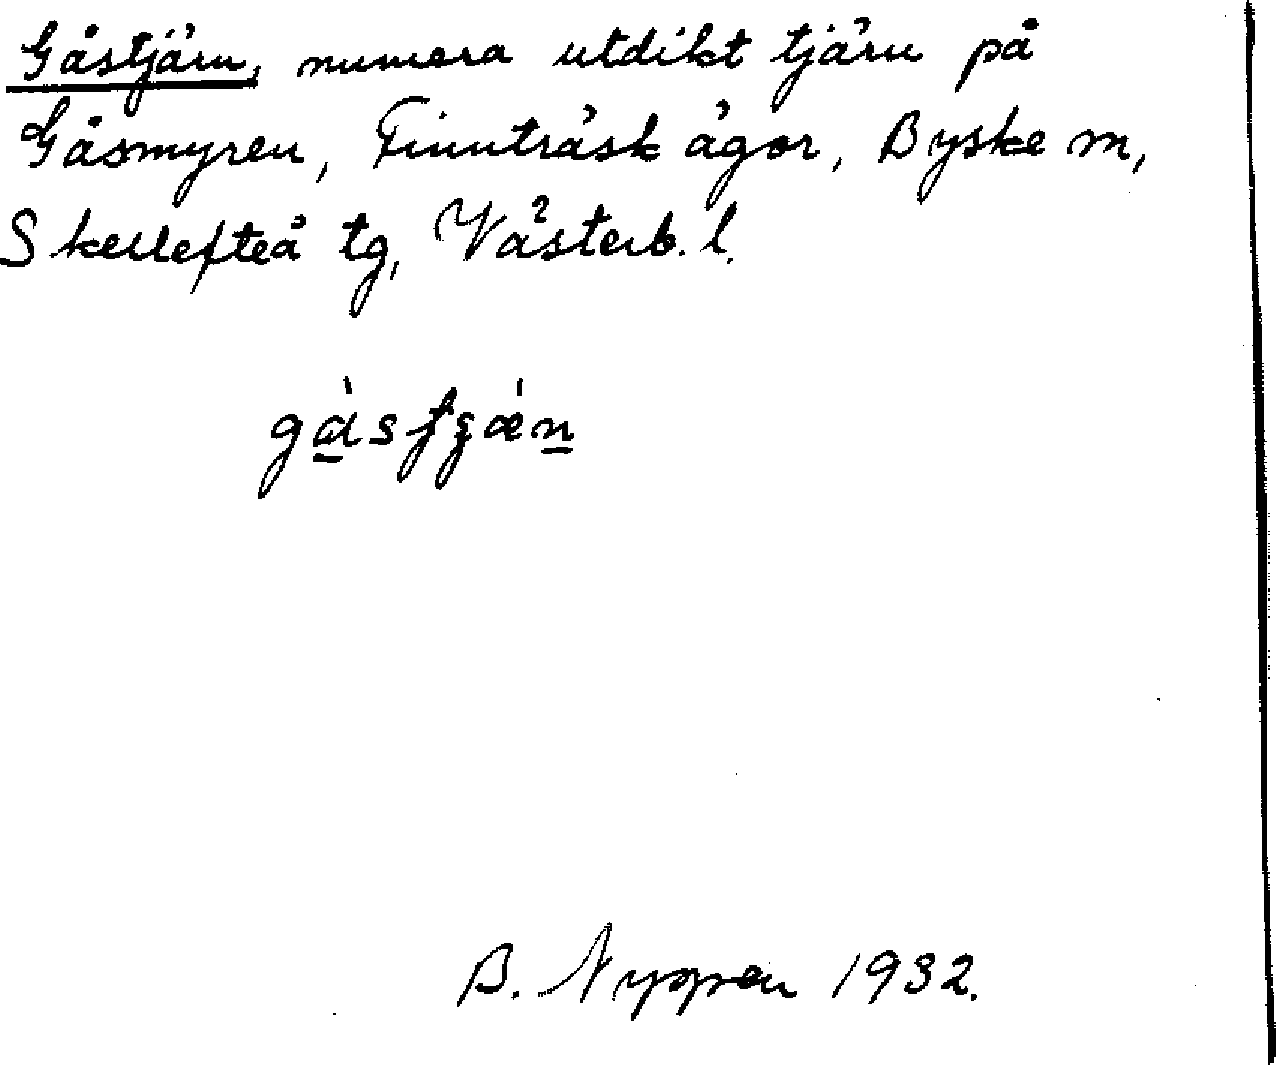 Gåstjärn, numera utdikt tjärn på
Gåsmyren, Finnträsk ägor, Byske sn,
Skellefteå tg, Västerb. l.
B. Nygren 1932.